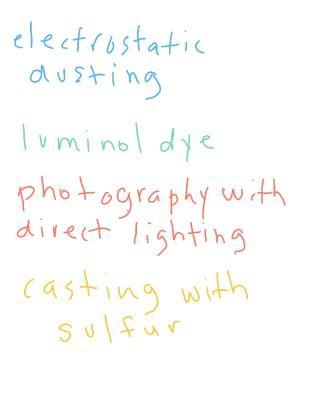 electrostatic
dusting
luminol dye
photography with
direct lighting
casting with
sulfur